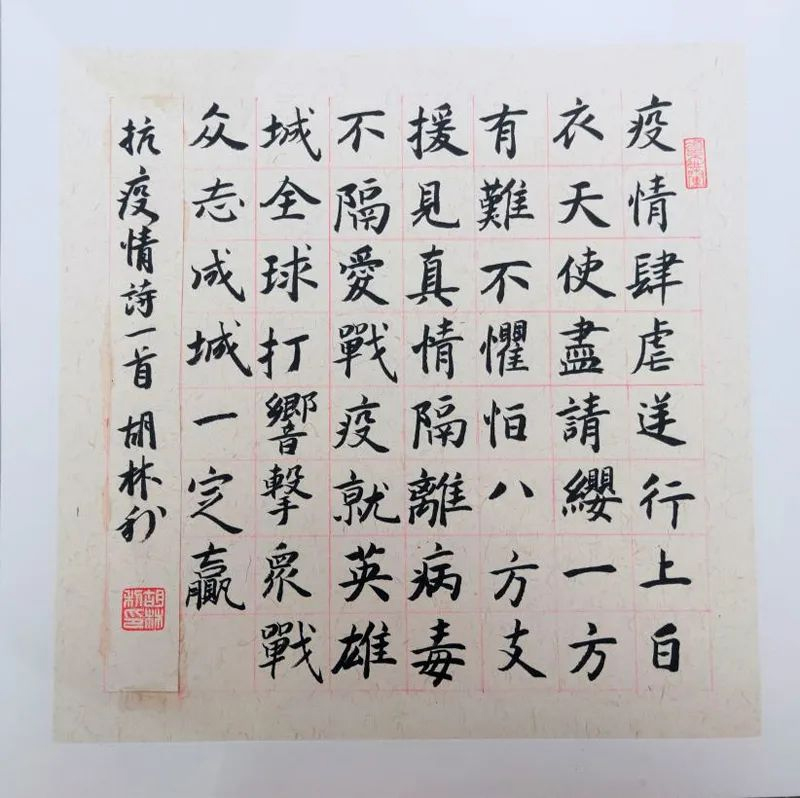 疫情肆虐逆行上白
衣天使盡請纓一方
有難不懼怕八方支
援見真情隔離病毒
不隔愛戰疫就英雄
城全球打響擊衆戰
众志成城一定贏
抗疫情詩一首 胡林利
胡林利印